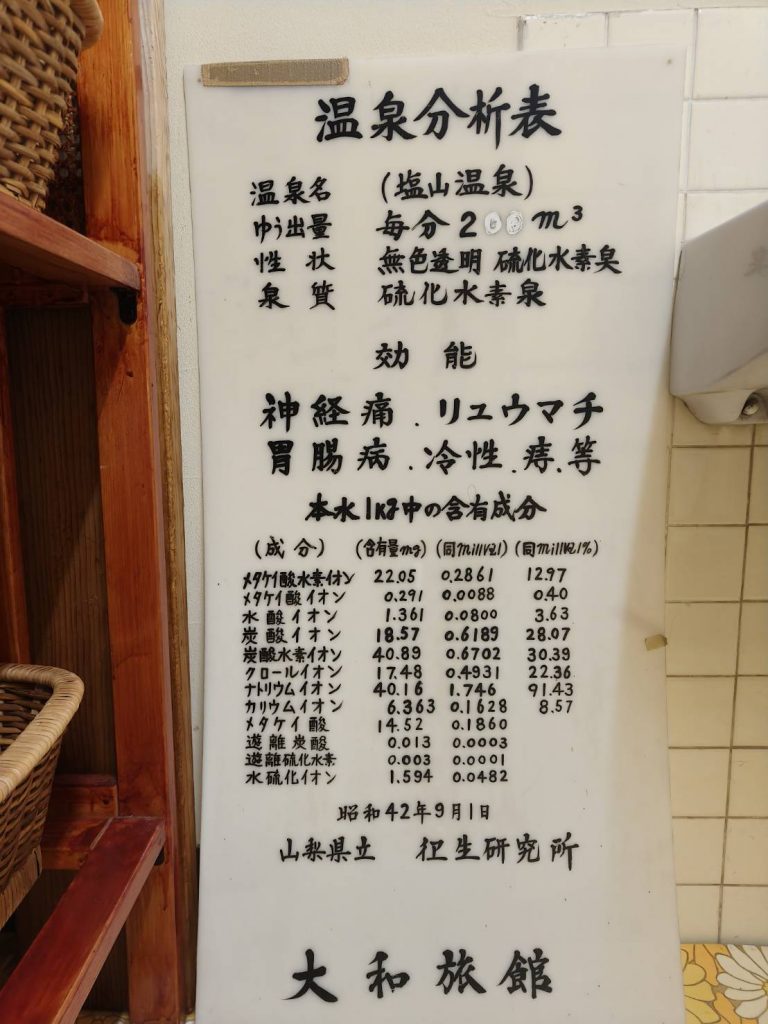 温泉分析表
温泉名 (塩山温泉)
ゆう出量 毎分 200 m³
性状 無色透明 硫化水素臭
泉質 硫化水素泉
効能
神経痛.リュウマチ
胃腸病.冷性.痔.等
本水1Kg中の含有成分
(成分) (含有量mg) (同millVal) (同millVal%)
メタケイ酸水素イオン 22.05 0.2861 12.97
メタケイ酸イオン 0.291 0.0088 0.40
水酸イオン 1.361 0.0800 3.63
炭酸イオン 18.57 0.6189 28.07
炭酸水素イオン 40.89 0.6702 30.39
クロールイオン 17.48 0.4931 22.36
ナトリウムイオン 40.16 1.746 91.43
カリウムイオン 6.363 0.1628 8.57
メタケイ酸 14.52 0.1860
遊離炭酸 0.013 0.0003
遊離硫化水素 0.003 0.0001
水硫化イオン 1.594 0.0482
昭和42年9月1日
山梨県立 衛生研究所
大和旅館